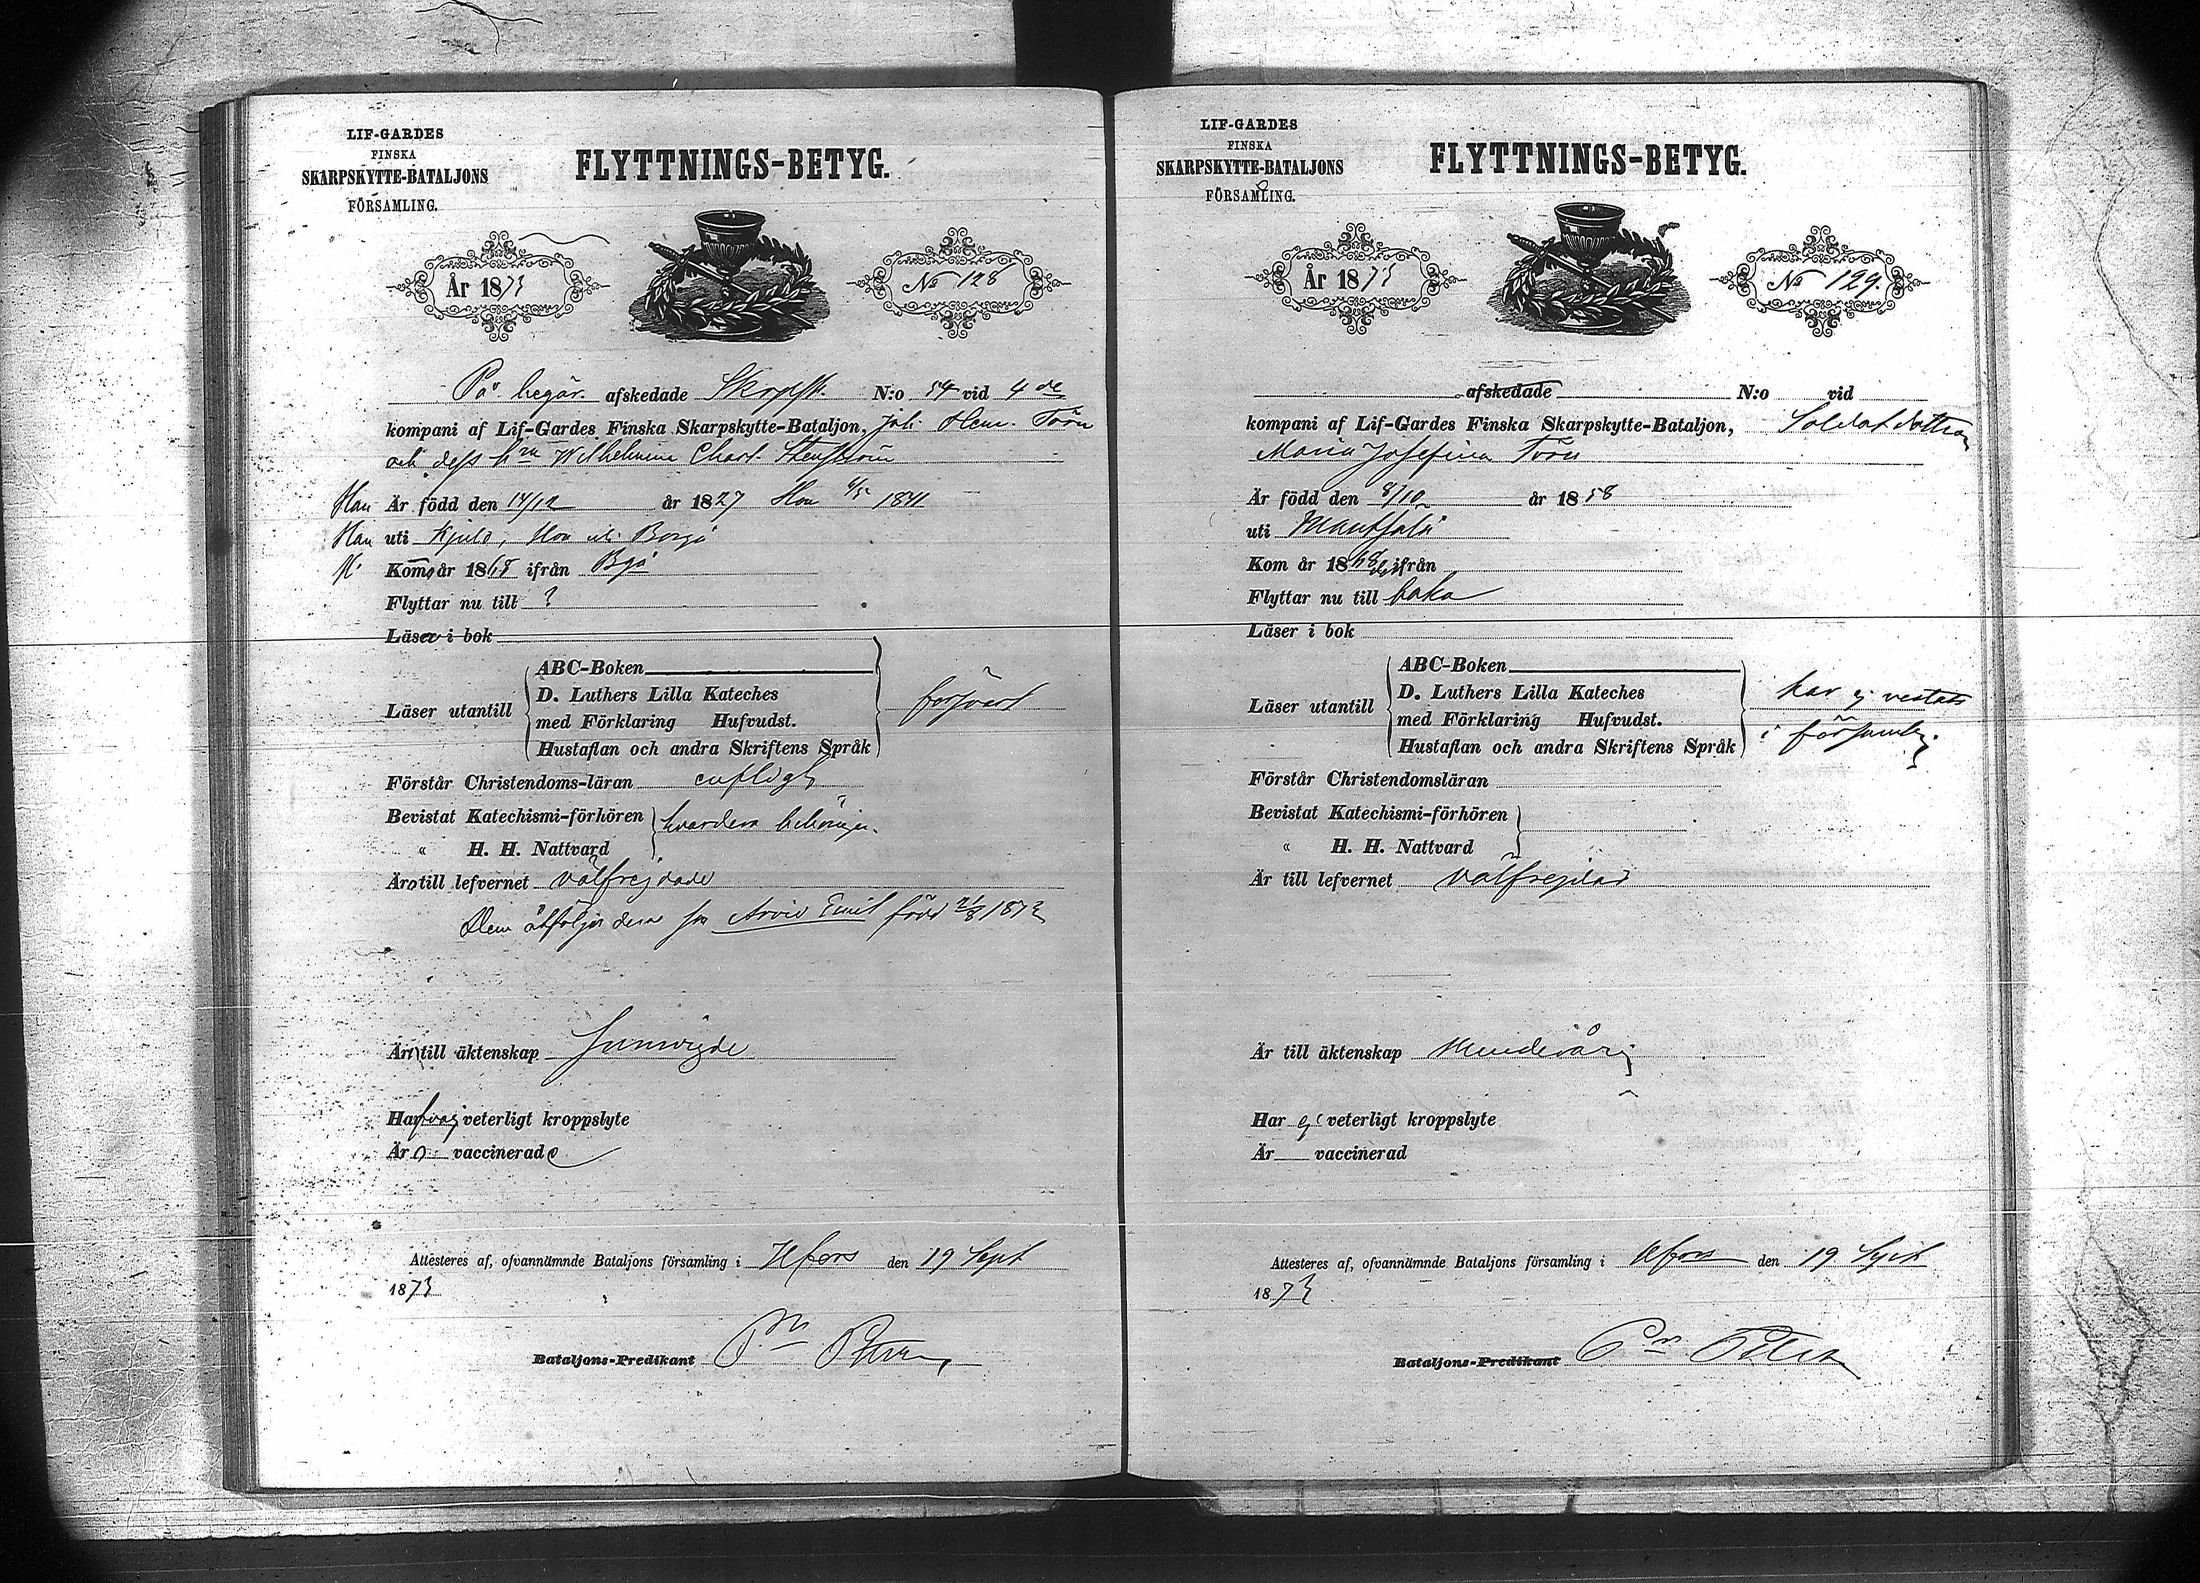 LIF-GARDES
FINSKA
SKARPSKYTTE-BATALJONS
FÖRSAMLING.
FLYTTNINGS-BETYG.
År 1873
No 128
På begär. afskedade Skrpsk. N:o 54 vid 4de
kompani af Lif-Gardes Finska Skarpskytte-Bataljon, Joh. Henr. Törn
och dess hru Wilhelmina Charl. Stenström
Han Är född den 14/12 år 1827 Hon 4/5 1831
Han uti Kjulo, Hon uti Borgå
Kommo år 1868 ifrån Bgå
Flyttar nu till ?
Läser i bok
Läser utantill
ABC-Boken
D. Luthers Lilla Kateches
med Förklaring Hufvudst.
Hustaflan och andra Skriftens Språk
försvarl
Förstår Christendoms-läran enfldigt
Bevistat Katechismi-förhören
« H. H. Nattvard
hvardera behörigen
Äro till lefvernet välfrejdade
Dem åtföljer deras son Arvid Emil född 21/8 1873
Äro till äktenskap sinsv
Har veterligt kroppslyte
Äro vaccinerade
Attesteres af, ofvannämnde Bataljons församling i Hfors den 19 Sept
1873
Bataljons-Predikant
LIF-GARDES
FINSKA
SKARPSKYTTE-BATALJONS
FÖRSAMLING.
FLYTTNINGS-BETYG.
År 1873
No 129.
afskedade N:o vid
kompani af Lif-Gardes Finska Skarpskytte-Bataljon, Soldatdottren
Maria Josefina Törn
Är född den 8/10 år 1858
uti Mäntsälä
Kom år 1868 ifrån
Flyttar nu till baka
Läser i bok
Läser utantill
ABC-Boken
D. Luthers Lilla Kateches
med Förklaring Hufvudst.
Hustaflan och andra Skriftens Språk
har ej vistats
i församlg.
Förstår Christendomsläran
Bevistat Katechismi-förhören
« H. H. Nattvard
Är till lefvernet välfrejdad
Är till äktenskap minderårig
Har ej veterligt kroppslyte
Är vaccinerad
Attesteres af, ofvannämnde Bataljons församling i Hfors den 19 Sept
1873
Bataljons-Predikant